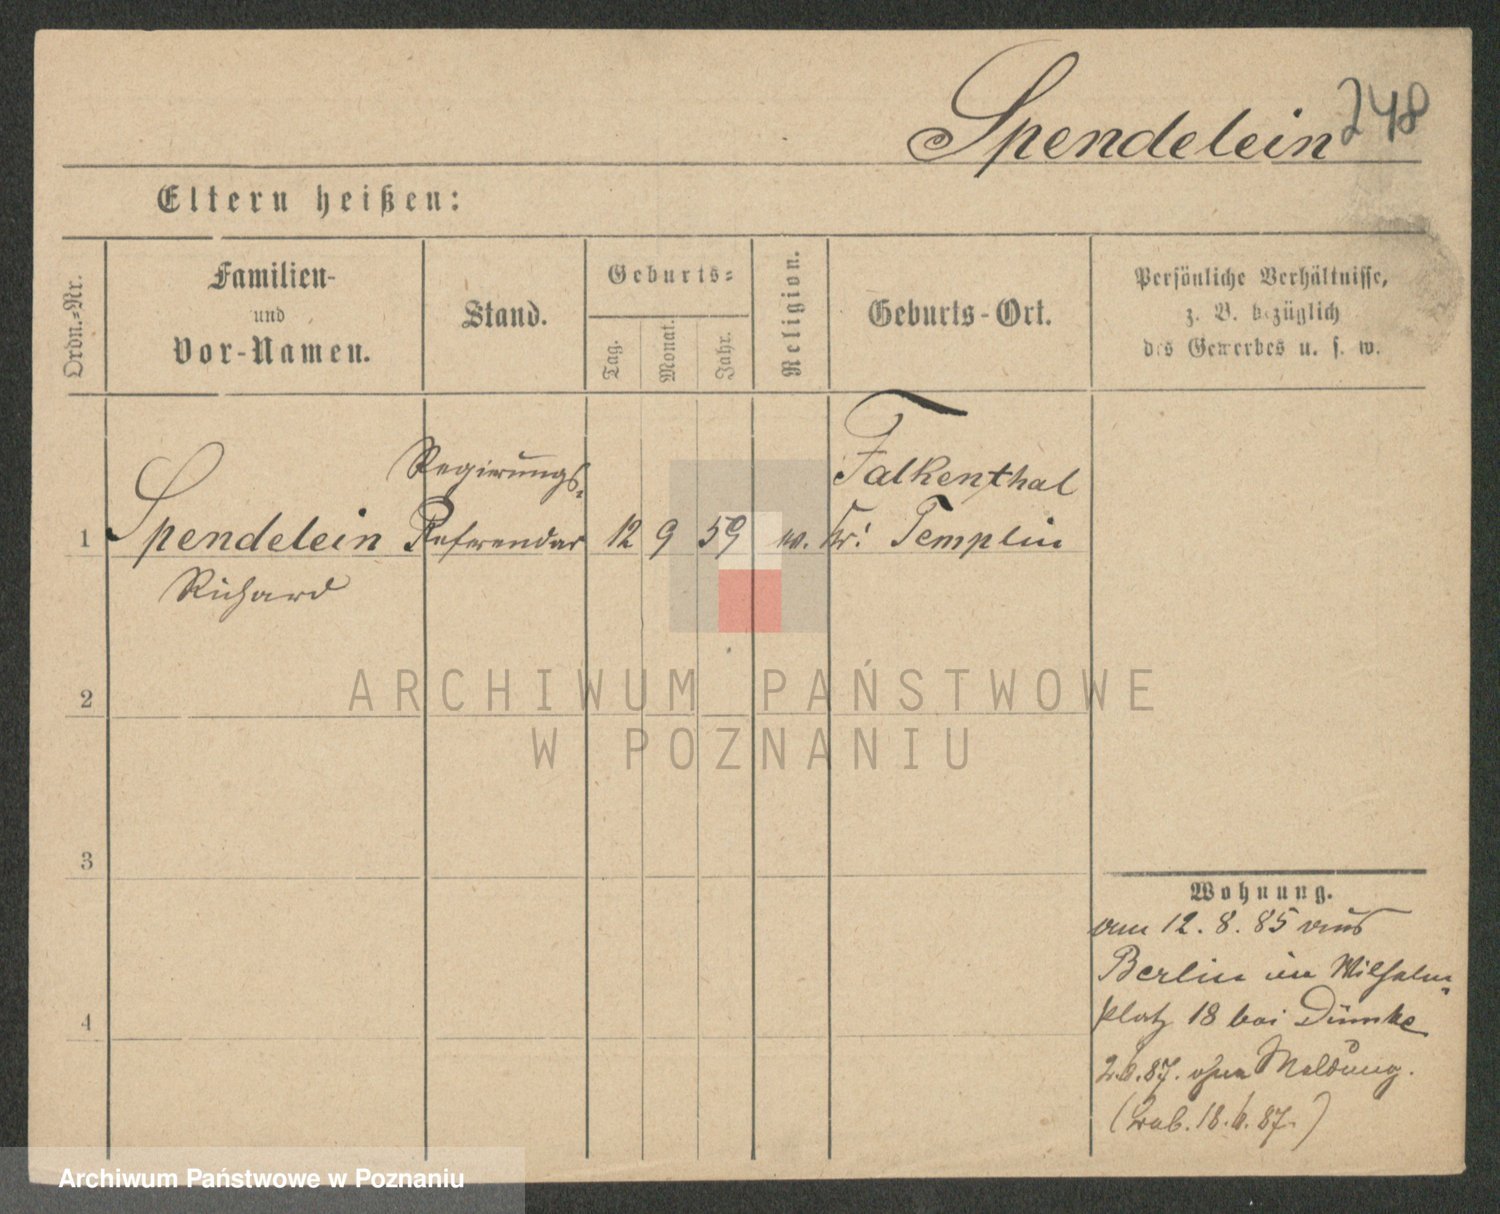 Spendelein 248
Eltern heißen:
Ordn.=Nr.
Familien-
und
Vor-Namen.
Stand.
Geburts=
Tag.
Monat.
Jahr.
Religion.
Geburts-Ort.
Persönliche Verhältnisse,
z. B. bezüglich
des Gewerbes u. s. w.
Regierungs-
Falkenthal
1 Spendelein Referendar 12 9 59 Kr. Templin
Richard
2
3
4
Wohnung.
12. 8. 85 aus
Berlin im Wilhelm-
platz 18 bei Dümke
2.6.87. ohne Meldung.
18.6.87.)
ARCHIWUM PAŃSTWOWE
W POZNANIU
Archiwum Państwowe w Poznaniu